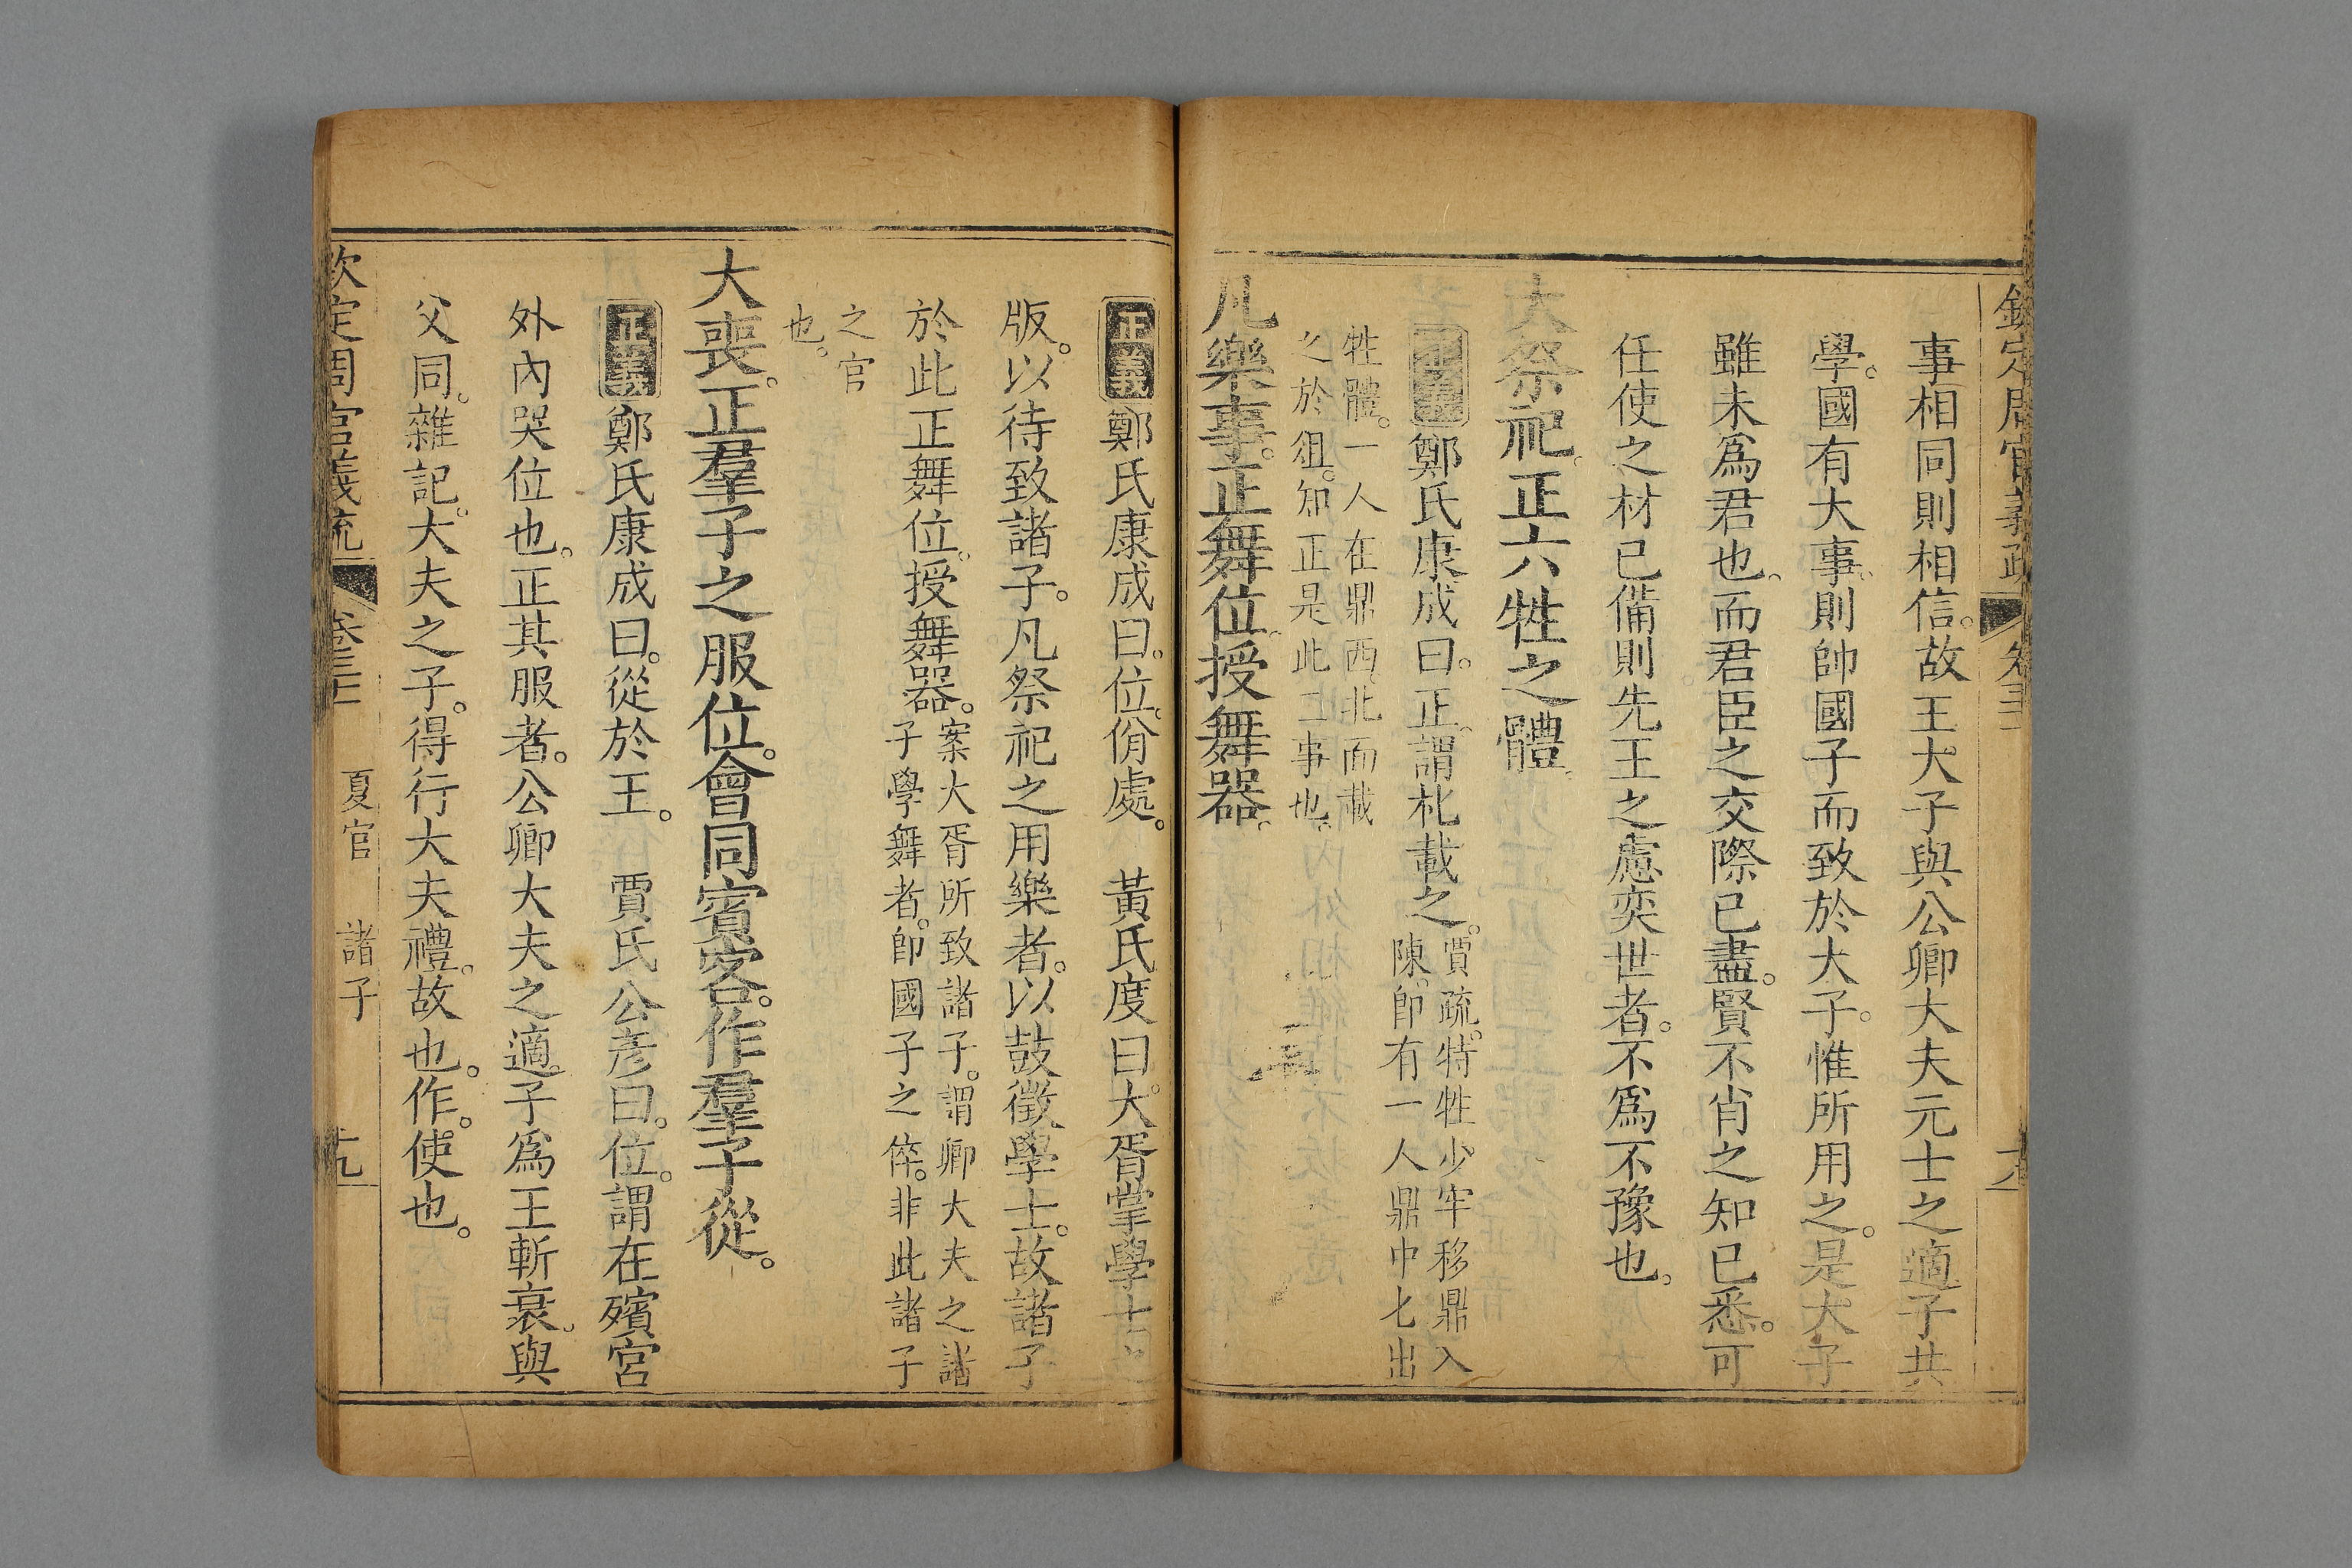 欽定周官義疏 卷三十一
事相同則相信。故王大子與公卿大夫元士之適子共
學。國有大事。則帥國子而致於大子。惟所用之。是大子
雖未爲君也。而君臣之交際已盡。賢不肖之知已悉。可
任使之材已備則先王之慮奕世者。不爲不豫也。
大祭祀。正六牲之體。
正義鄭氏康成曰。正。謂朼載之。賈疏。特牲少牢移鼎入
陳。卽有一人鼎中匕出
牲體。一人在鼎西。北面載
之於俎。知正是此二事也。
凡樂事。正舞位。授舞器。
正義鄭氏康成曰。位。佾處。 黃氏度曰。大胥掌學士之
版。以待致諸子。凡祭祀之用樂者。以鼓徵學士。故諸子
於此正舞位。授舞器。案大胥所致諸子。謂卿大夫之諸
子學舞者。卽國子之倅。非此諸子
之官
也。
大喪。正羣子之服位。會同賓客。作羣子從。
正義鄭氏康成曰。從於王。 賈氏公彥曰。位。謂在殯宮
外內哭位也。正其服者。公卿大夫之適子爲王斬衰。與
父同。雜記。大夫之子。得行大夫禮。故也。作。使也。
欽定周官義疏 卷三十一 夏官 諸子 十九